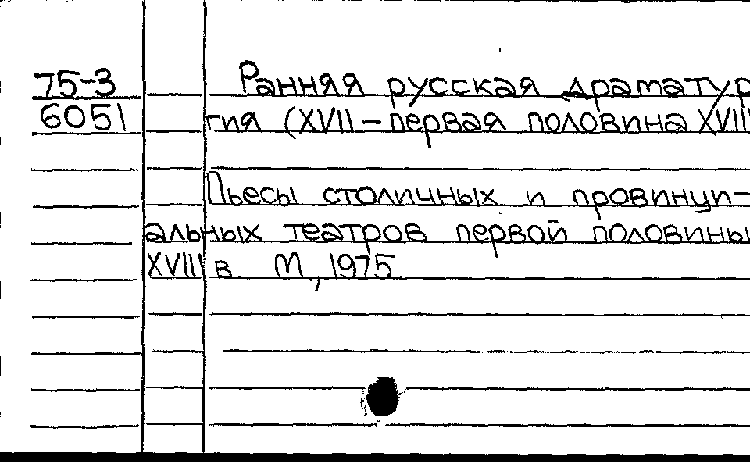 75-3 Ранняя русская драматур
6051 гия (XVII – первая половина XVIII
Пьесы столичных и провинци-
альных театров первой половины
XVIII в М., 1975